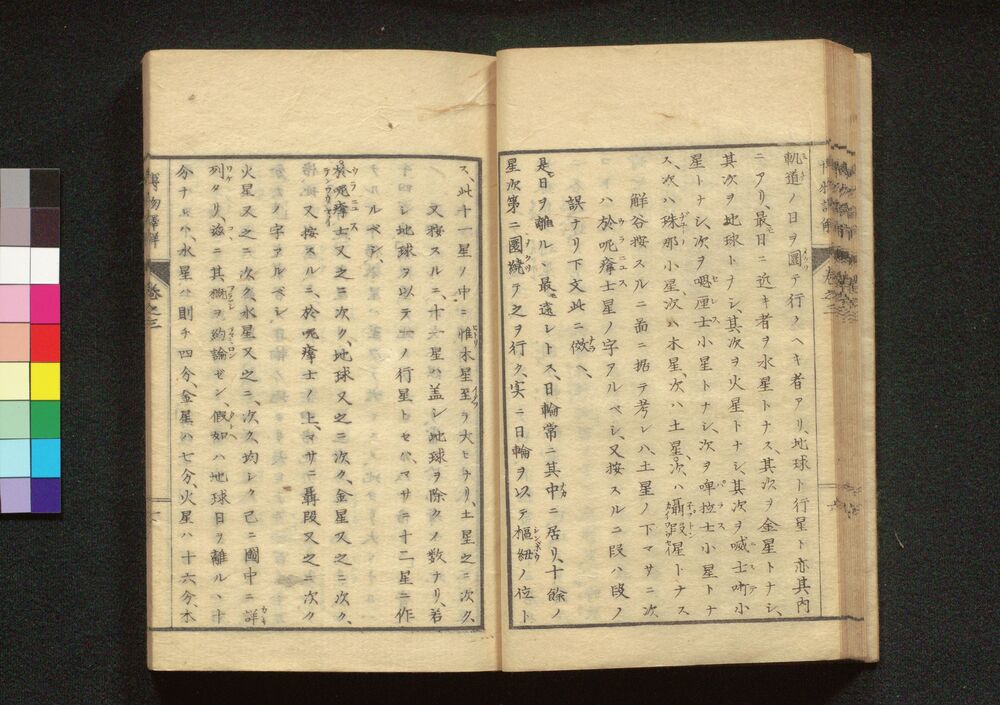 軌道ノ日ヲ圜テ行クヘキ者アリ、地球ト行星ト亦其内
ニアリ、最日ニ近キ者ヲ水星トナス、其次ヲ金星トナシ、
其次ヲ地球トナシ、其次ヲ火星トナシ、其次ヲ
星トナシ、次ヲ嗯厘士小星トナシ、次ヲ啤拉士小星トナ
ス、次ハ珠那小星、次ハ木星、次ハ土星、次ハ
觧谷按スルニ畾ニ据テ考レハ、土星ノ下マサニ次
ハ於呃瘠士星ノ字アルベシ、又按スルニ段ハ段ノ
誤ナリ下文此ニ倣ヘ、
是日ヲ離ル丶最遠シトス、日輪常ニ其中ニ居リ、十餘ノ
星次第ニ圜繞テ之ヲ行ク、実ニ日輪ヲ以テ樞紐ノ位ト
ス、此十一星ノ中ニ惟木星至テ大ヒナリ、土星之ニ次ク、
又按スルニ、十一星ハ盖シ地球ヲ除クノ数ナリ、若
シ地球ヲ以テ一ノ行星トセバ、マサニ十二星ニ作
ルベシ、
於呃瘠士又之ニ次ク、地球又之ニ次ク、金星又之ニ次ク、
又按スルニ、於呃瘠士ノ上、マサニ聶段又之ニ次ク
ノ字アルベシ、
火星又之ニ次ク、水星又之ニ次ク、均シク己ニ圖中ニ詳
列タリ、茲ニ其槪ヲ約論セン、假如ハ地球日ヲ離ル丶十
分ナレハ、水星ハ則チ四分、金星ハ七分、火星ハ十六分、木
博物
卷之三